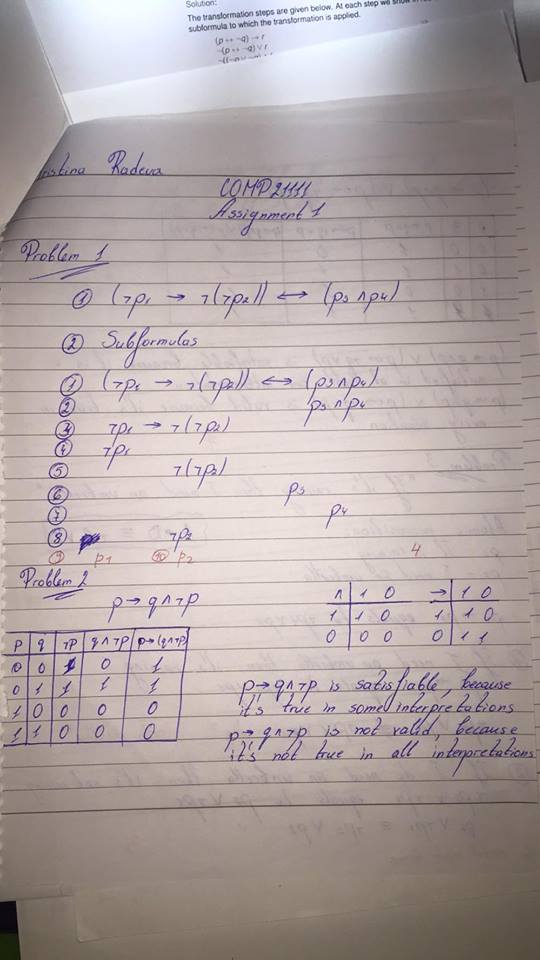 Solution:
The transformation steps are given below. At each step we show
subformula to which the transformation is applied.
(p ↔ ¬q) → r
¬(p ↔ ¬q) ∨ r
Radeva
COMP21111
Assignment 1
Problem 1
① (¬p₁ → ¬(¬p₂)) ↔ (p₃ ∧ p₄)
② Subformulas
① (¬p₁ → ¬(¬p₂)) ↔ (p₃ ∧ p₄)
② p₃ ∧ p₄
③ ¬p₁ → ¬(¬p₂)
④ ¬p₁
⑤ ¬(¬p₂)
⑥ p₃
⑦ p₄
⑧ ¬p₂
⑨ p₁ ⑩ p₂ 4
Problem 2
p → q ∧ ¬p
p q ¬p q∧¬p p→(q∧¬p)
0 0 1 0 1
0 1 1 1 1
1 0 0 0 0
1 1 0 0 0
∧ 1 0
1 1 0
0 0 0
→ 1 0
1 1 0
0 1 1
p → q ∧ ¬p is satisfiable, because
it's true in some interpretations
p → q ∧ ¬p is not valid, because
it's not true in all interpretations